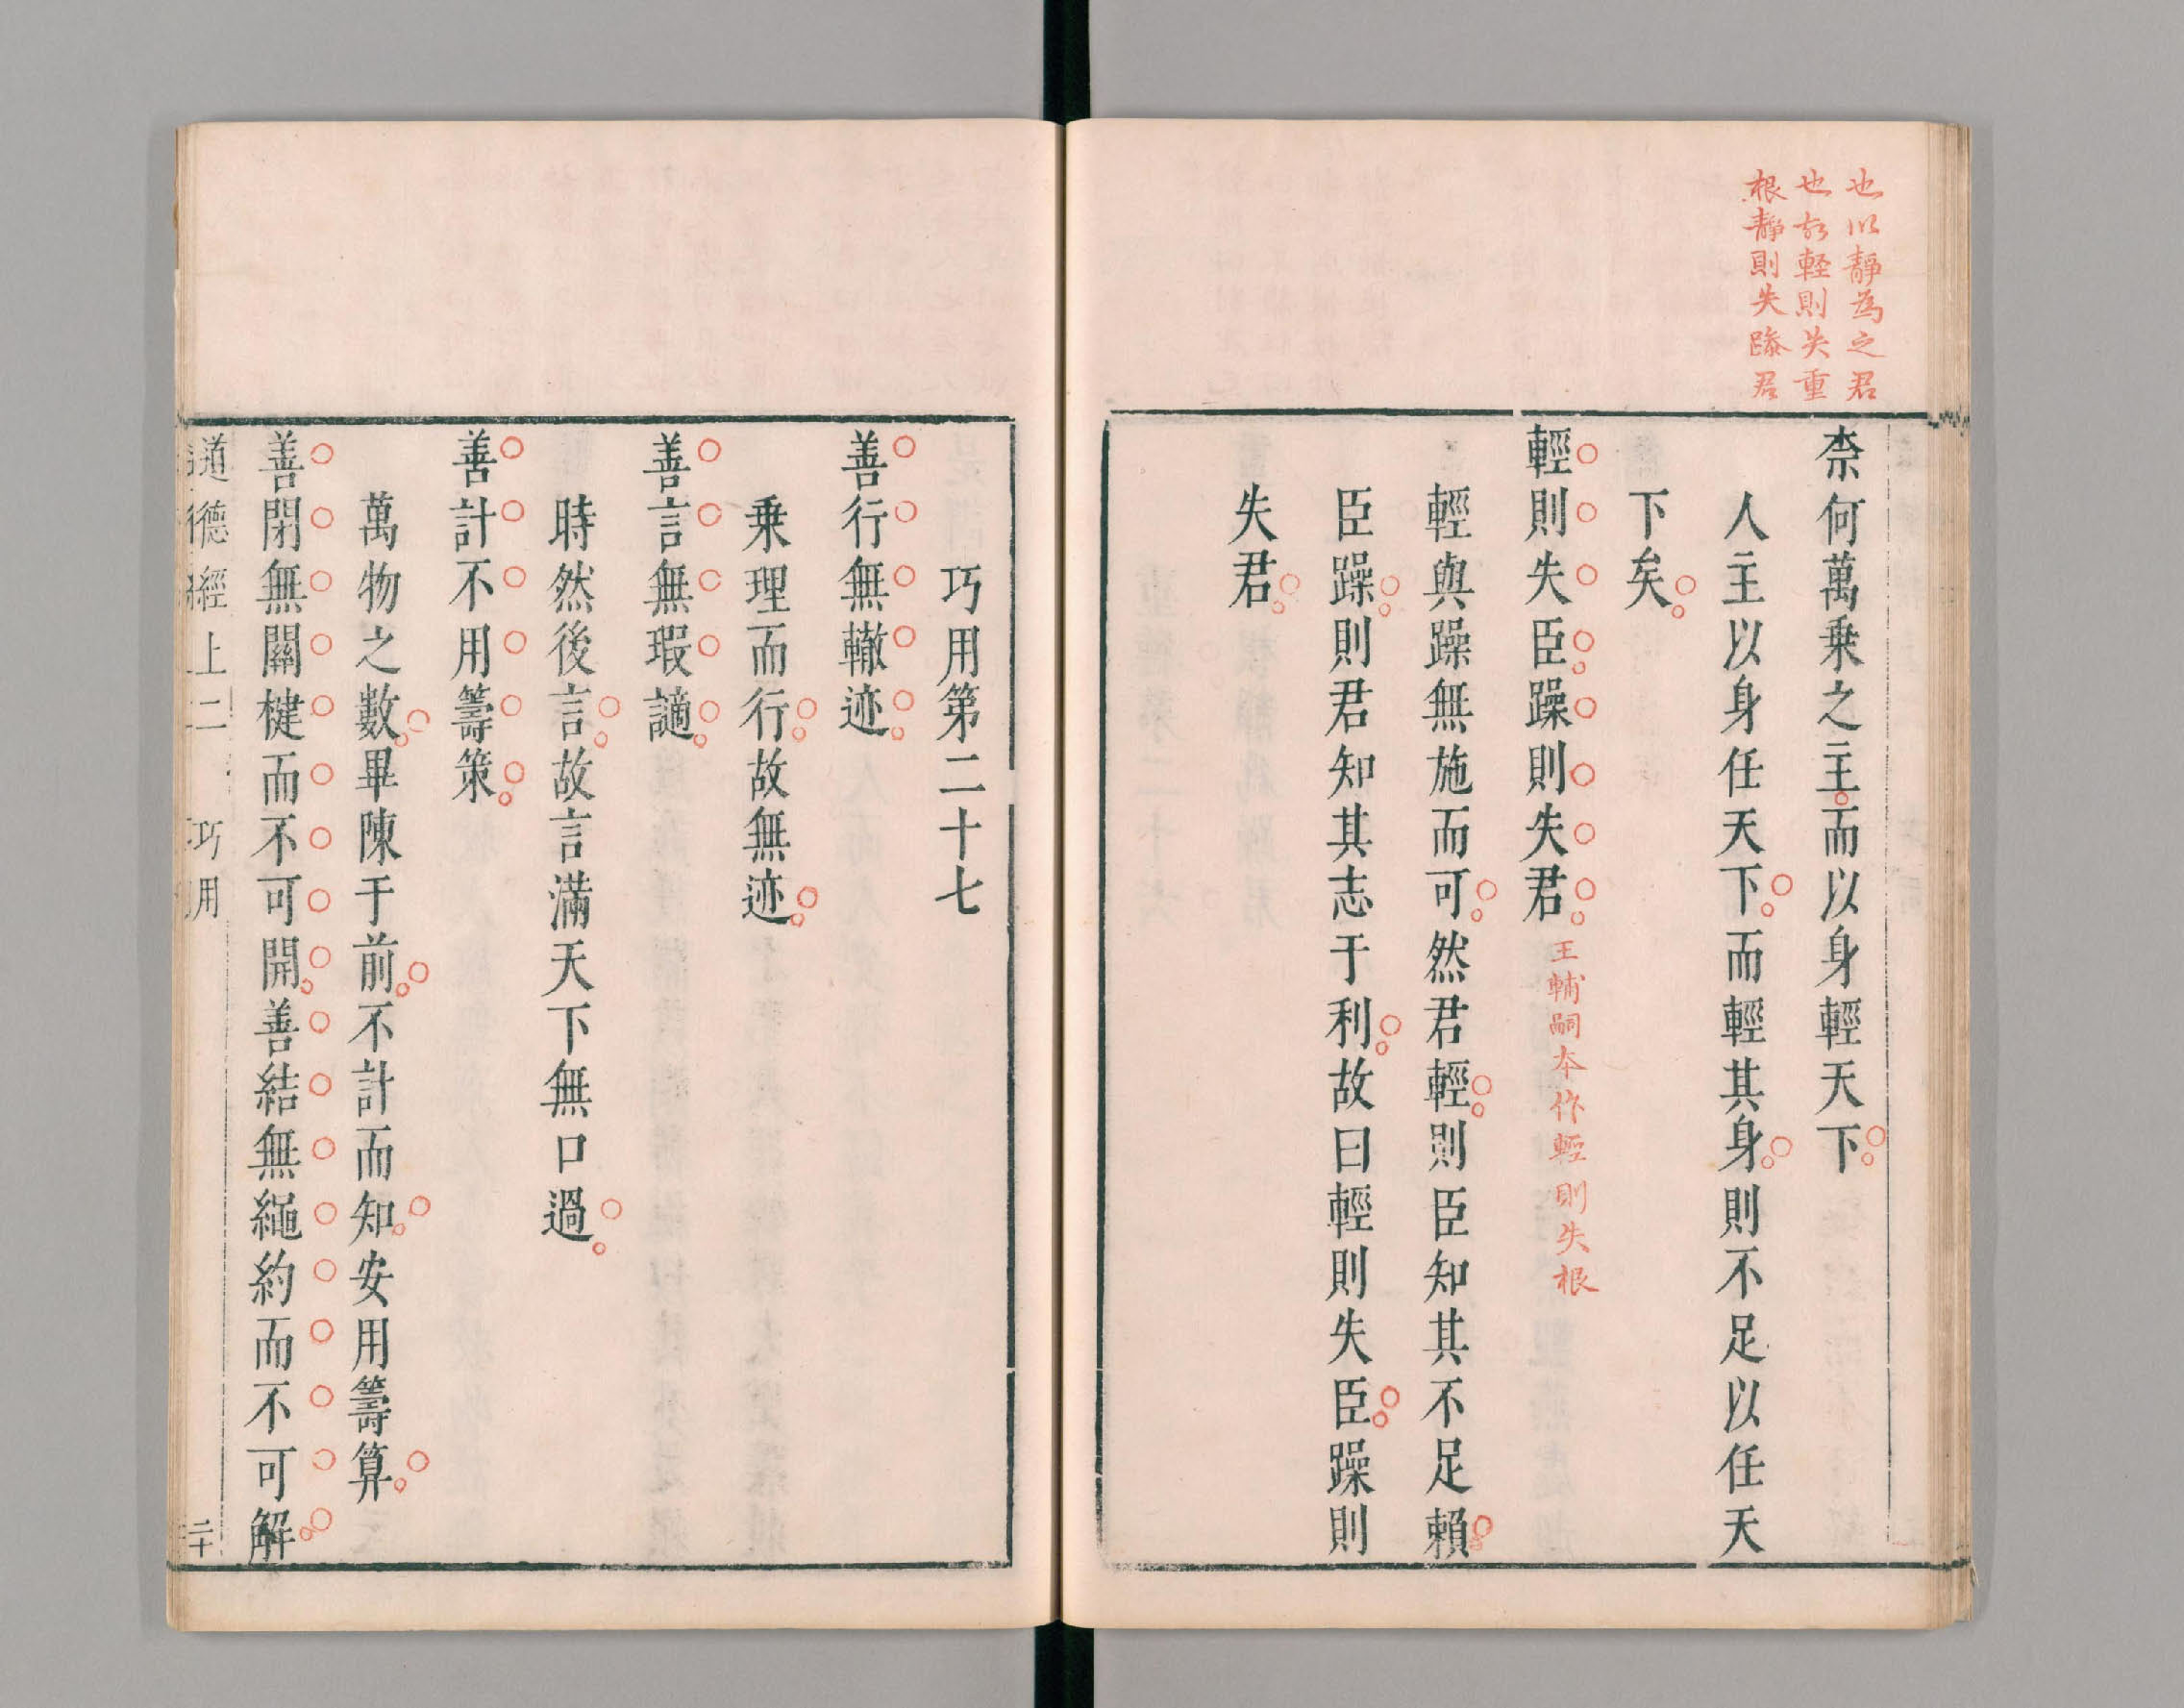 也以靜為之君
也故輕則失重
根靜則失躁君
柰何萬乗之主而以身輕天下
人主以身任天下而輕其身則不足以任天
下矣
輕則失臣躁則失君
王輔嗣本作輕則失根
輕與躁無施而可然君輕則臣知其不足賴
臣躁則君知其志于利故曰輕則失臣躁則
失君
巧用第二十七
善行無轍迹
乗理而行故無迹
善言無瑕讁
時然後言故言滿天下無口過
善計不用籌策
萬物之數畢陳于前不計而知安用籌算
善閉無關楗而不可開善結無繩約而不可解
道德經上二 巧用 二十